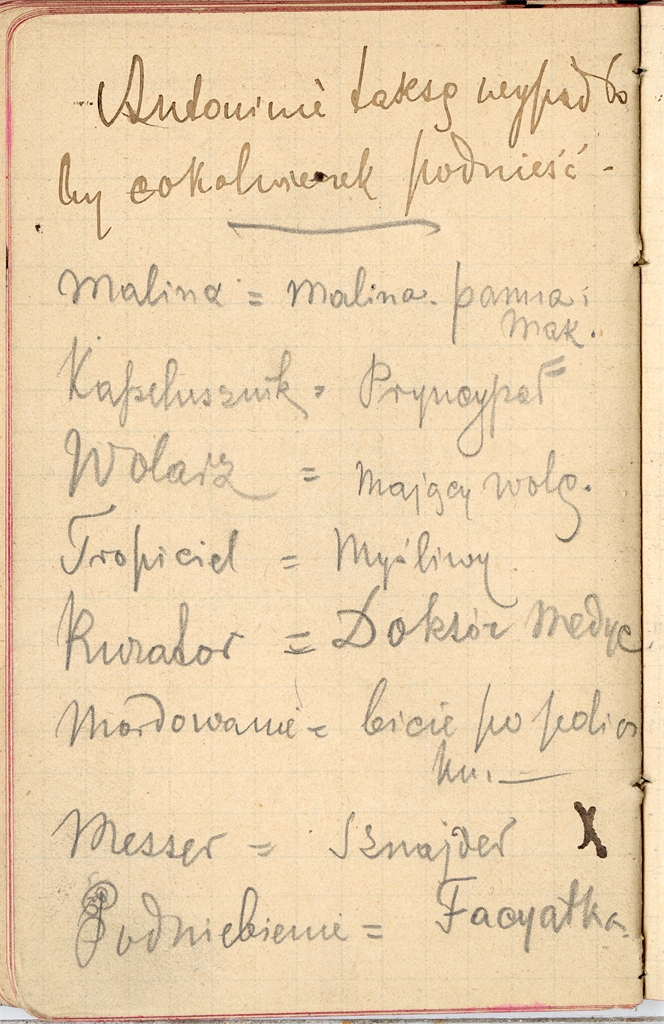 Antonimie taksą wypad do
by cokolwiek podnieść -
Malina = Malina. panna i
Mak.
Kapelusznik = Pryncypał =
Wolarz = Mający wolę.
Tropiciel = Myśliwy
Kurator = Doktór Medyc.
Mordowanie = bicie po polic
ku. —
Messer = Sznajder X
Podniebienie = Facyatka.